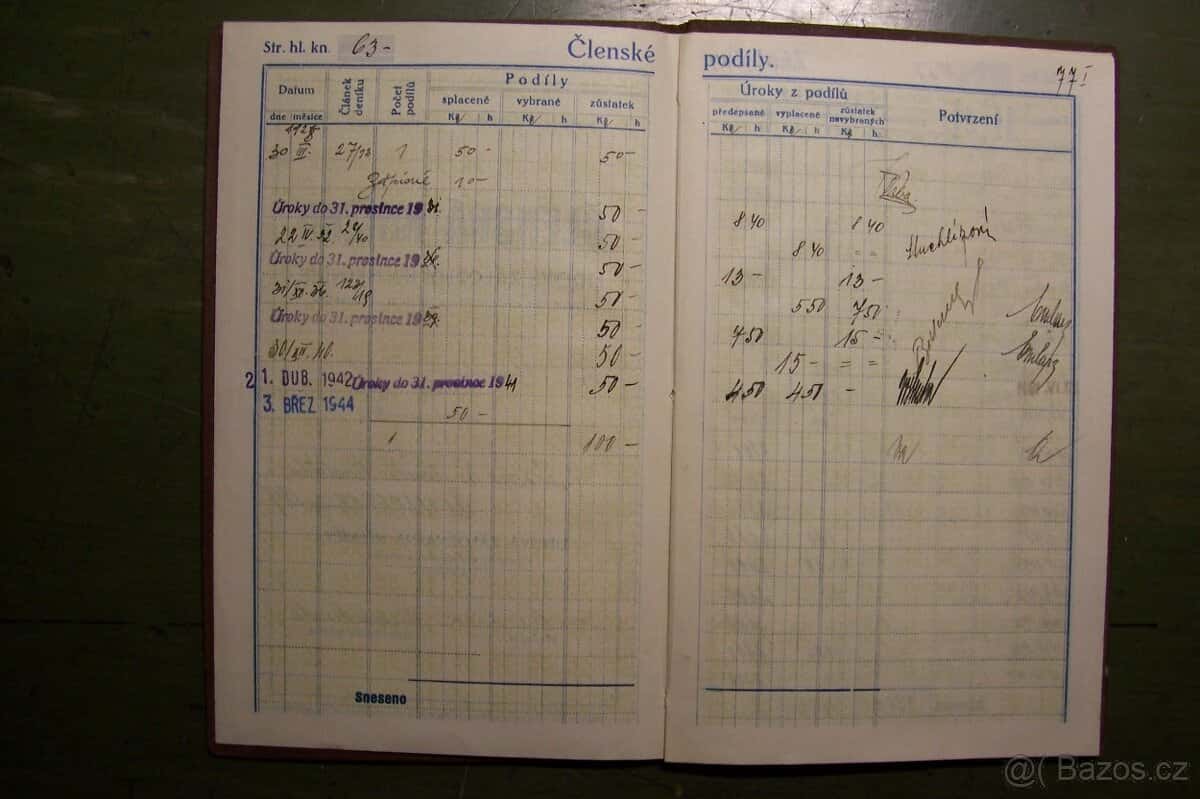 Str. hl. kn. 63-
Členské podíly.
77 I
Datum
dne měsíce
Článek deníku
Počet podílů
Podíly
splacené vybrané zůstatek
Kč h Kč h Kč h
Úroky z podílů
předepsané vyplacené zůstatek nevybraných
Kč h Kč h Kč h
Potvrzení
30 III. 1 50 - 50 -
10 -
Úroky do 31. prosince 19 50 - 8 40 8 40
22 IV. 32. 50 - 8 40 " "
Úroky do 31. prosince 19 50 - 13 - 13 -
50 - 5 50 7 50
Úroky do 31. prosince 19 50 - 7 50 15 -
30/XII. 40. 50 - 15 - = =
2 1. DUB. 1942 Úroky do 31. prosince 19 41 50 - 4 50 4 50 -
3. BŘEZ 1944 50 -
1 100 -
Sneseno
@( Bazos.cz